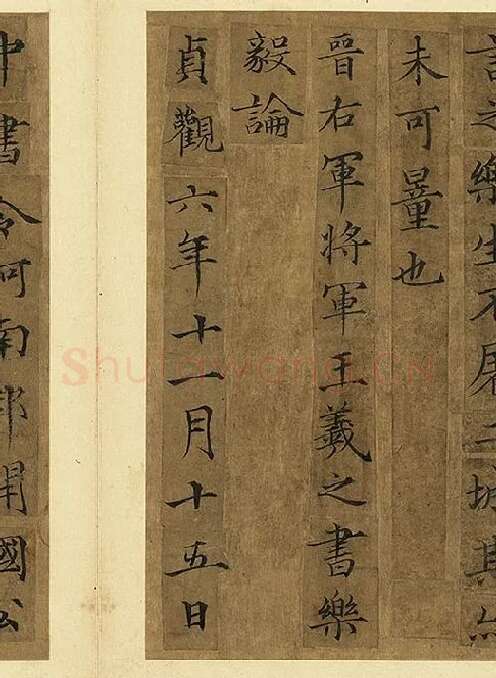 言之樂生不屠二城其亦
未可量也
晉右軍將軍王羲之書樂
毅論
貞觀六年十一月十五日
中書令河南郡開國公